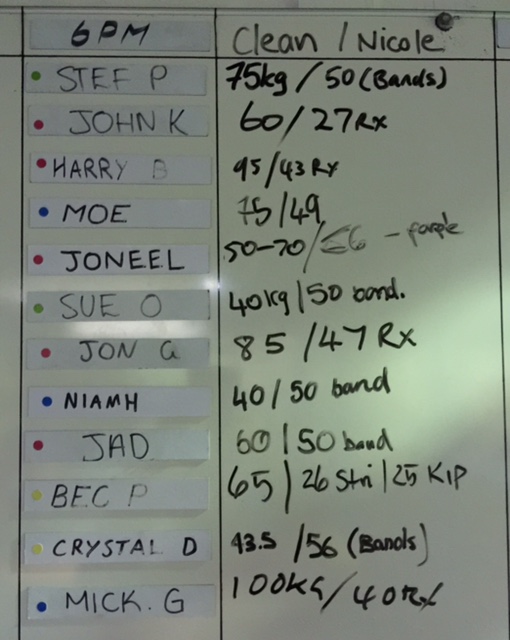 6PM Clean / Nicole
STEF P 75kg / 50 (Bands)
JOHN K 60 / 27 Rx
HARRY B 95 / 43 Rx
MOE 75 / 49
JONEEL 50-70 / 56 - purple
SUE O 40kg / 50 band.
JON G 85 / 47 Rx
NIAMH 40 / 50 band
JAD 60 / 50 band
BEC P 65 / 26 Stri / 25 KIP
CRYSTAL D 43.5 / 56 (Bands)
MICK. G 100KG / 40 Rx